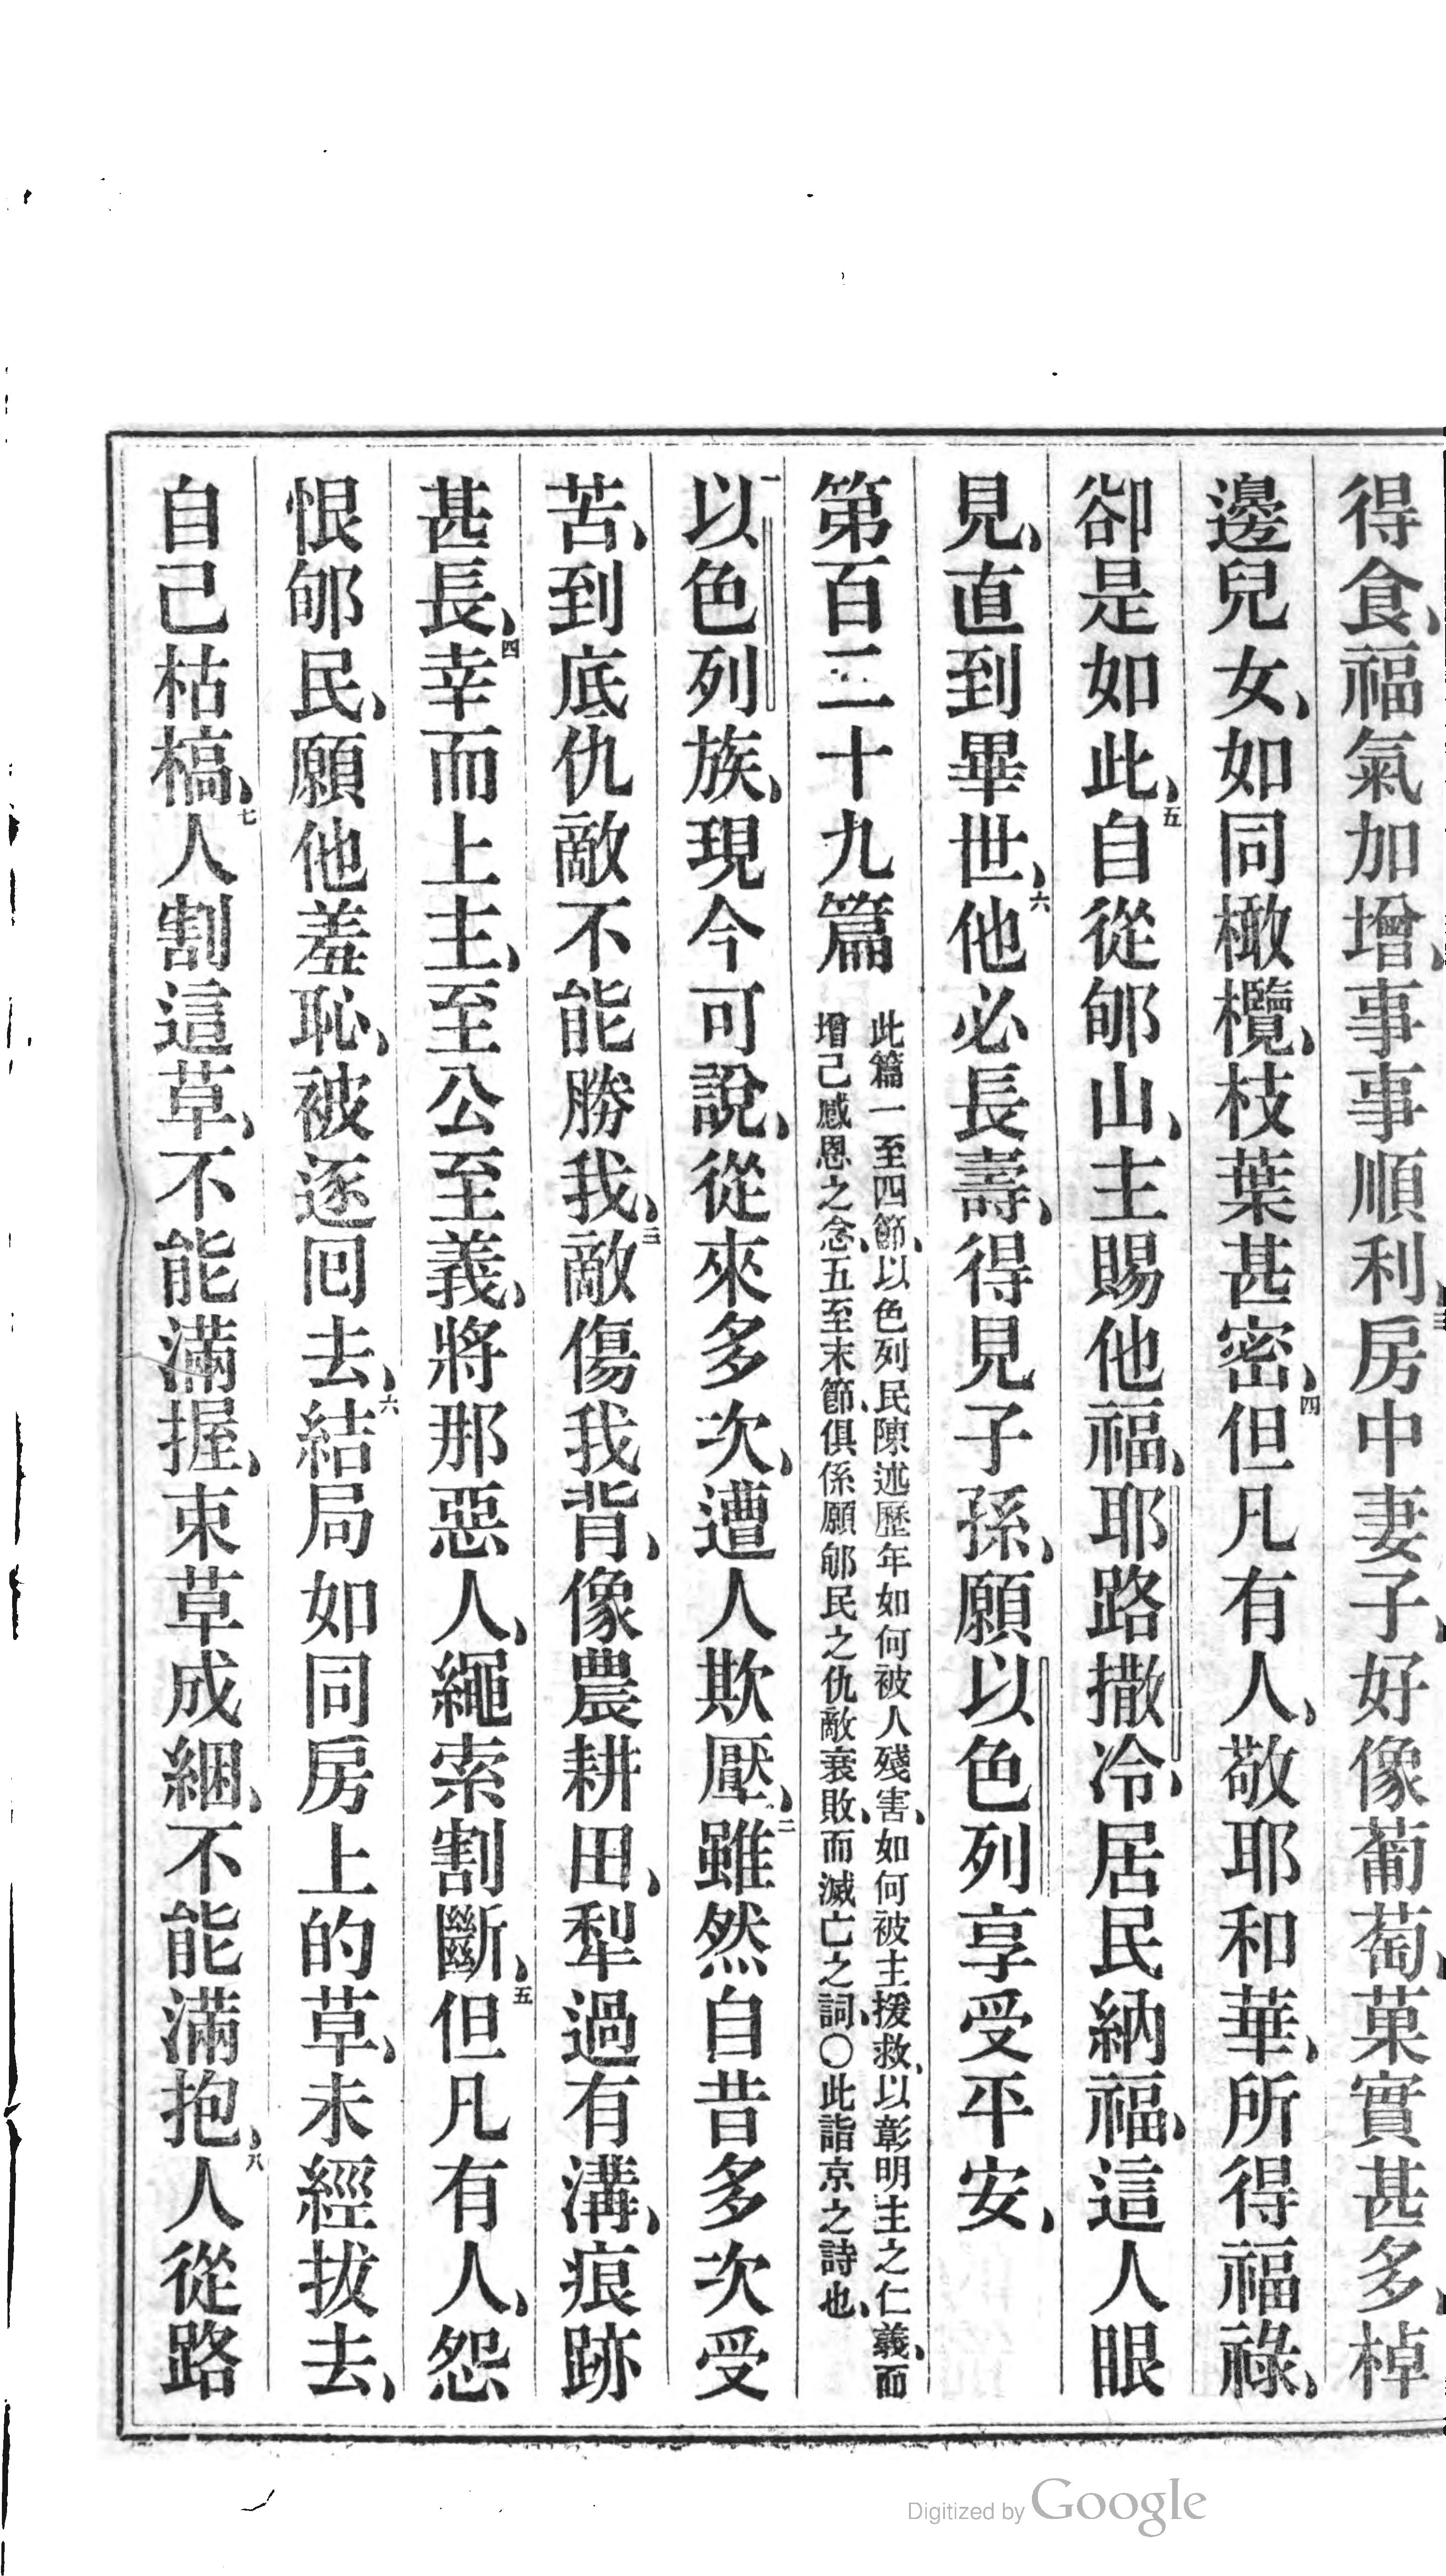 得食、福氣加增、事事順利、三房中妻子、好像葡萄、菓實甚多、棹
邊兒女、如同橄欖、枝葉甚密、四但凡有人、敬耶和華、所得福祿、
卻是如此、五自從郇山、主賜他福、耶路撒冷、居民納福、這人眼
見、直到畢世、六他必長壽、得見子孫、願以色列享受平安、
第百二十九篇
此篇一至四節、以色列民陳述歷年如何被人殘害、如何被主援救、以彰明主之仁義、而
增己感恩之念、五至末節、俱係願郇民之仇敵衰敗、而滅亡之詞、○此詣京之詩也、
一以色列族、現今可說、從來多次、遭人欺壓、二雖然自昔多次受
苦、到底仇敵不能勝我、三敵傷我背、像農耕田、犁過有溝、痕跡
甚長、四幸而上主、至公至義、將那惡人、繩索割斷、五但凡有人、怨
恨郇民、願他羞恥、被逐囘去、六結局如同房上的草、未經拔去、
自己枯槁、七人割這草、不能滿握、束草成綑、不能滿抱、八人從路
Digitized by Google